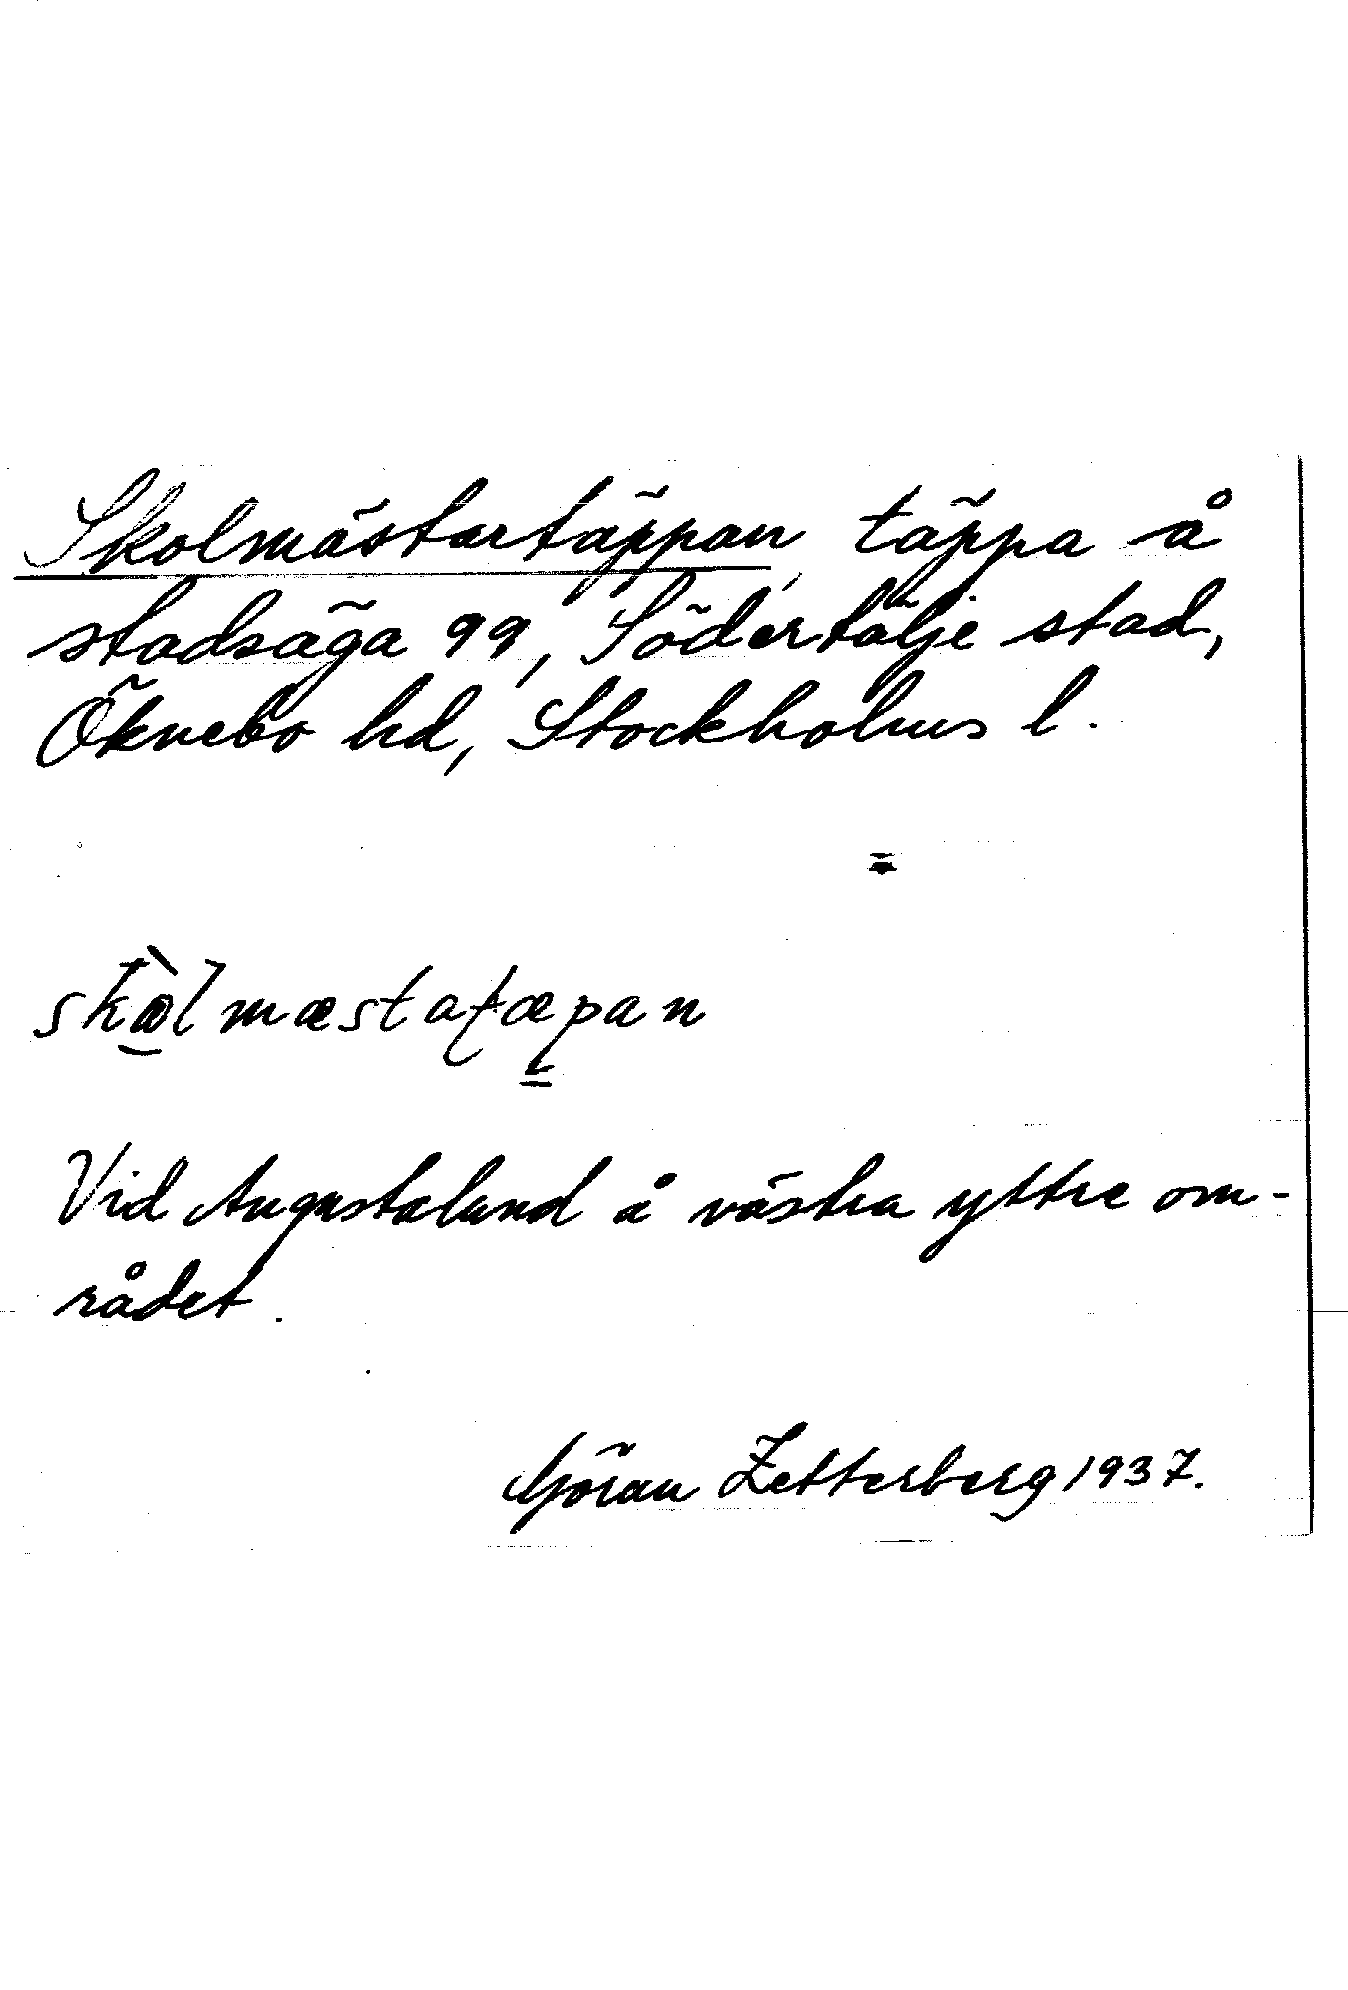 Skolmästartäppan, täppa å
stadsäga 99, Södertälje stad,
Öknebo hd, Stockholms l.
skòlmæstaʈæpan
Vid Augustalund å västra yttre om-
rådet.
Göran Zetterberg 1937.